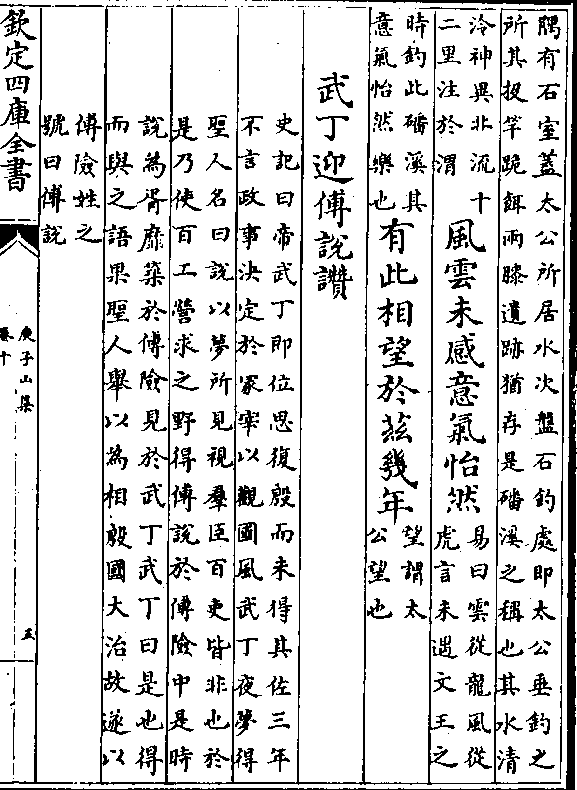 隅有石室蓋太公所居水次盤石釣處即太公垂釣之
所其投竿跪餌兩膝遺跡猶存是磻溪之稱也其水清
泠神異北流十
二里注於渭
風雲未感意氣怡然
易曰雲從龍風從
虎言未遇文王之
時釣此磻溪其
意氣怡然樂也
有此相望於兹幾年
望謂太
公望也
武丁迎傅說讚
史記曰帝武丁即位思復殷而未得其佐三年
不言政事決定於冢宰以觀國風武丁夜夢得
聖人名曰說以夢所見視羣臣百吏皆非也於
是乃使百工營求之野得傅說於傅險中是時
說為胥靡築於傅險見於武丁武丁曰是也得
而與之語果聖人舉以為相殷國大治故遂以
傅險姓之
號曰傅說
欽定四庫全書
庾子山集
卷十
五